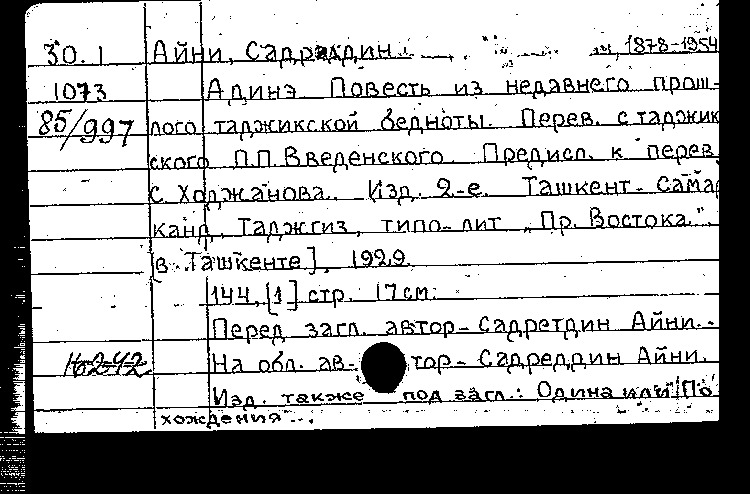 30.1 Айни, Садриддин , 1878-1954
1073 Адинэ Повесть из недавнего прош-
85/997 лого таджикской бедноты. Перев. с таджик
ского П.П. Введенского. Предисл. к перев
С. Ходжанова. Изд. 2-е. Ташкент - Самар
канд, Таджгиз, типо-лит „Пр. Востока".
[в Ташкенте], 1929.
144, [1] стр. 17 см.
Перед загл. автор - Садретдин Айни.
16242 На обл. автор - Садреддин Айни.
Изд. также под загл.: Одина или "По
хождения ...